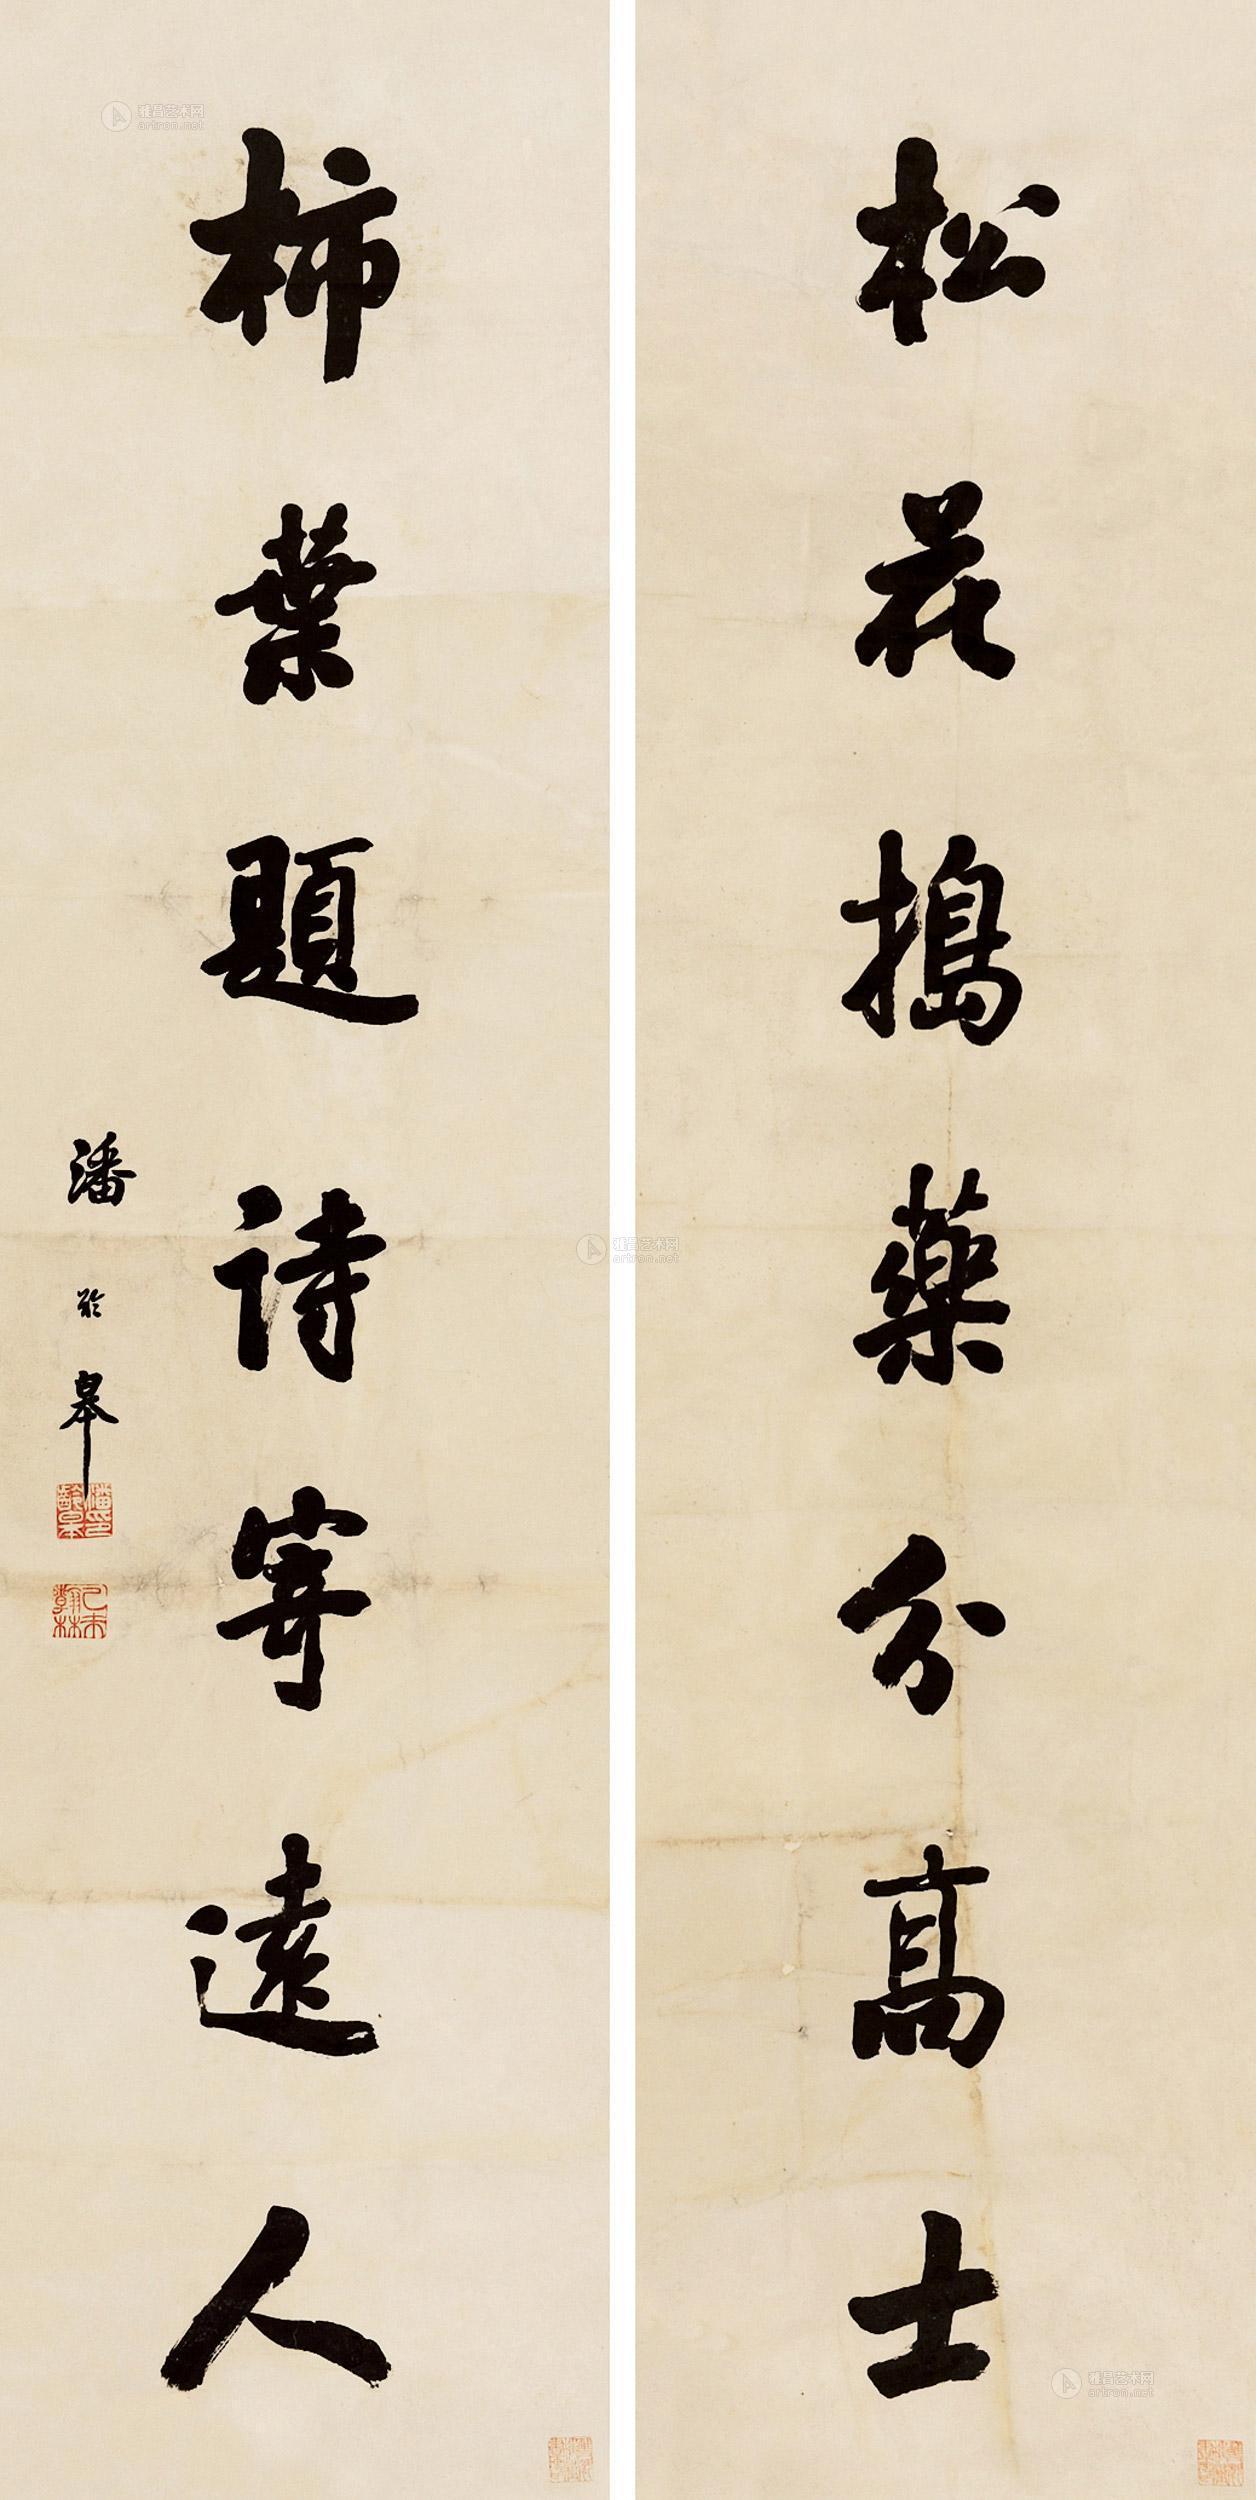 松花搗藥分高士
柿葉題詩寄遠人
潘齡皋
潘印齡皋
己未翰林
雅昌艺术网
artron.net
雅昌艺术网
artron.net
雅昌艺术网
artron.net